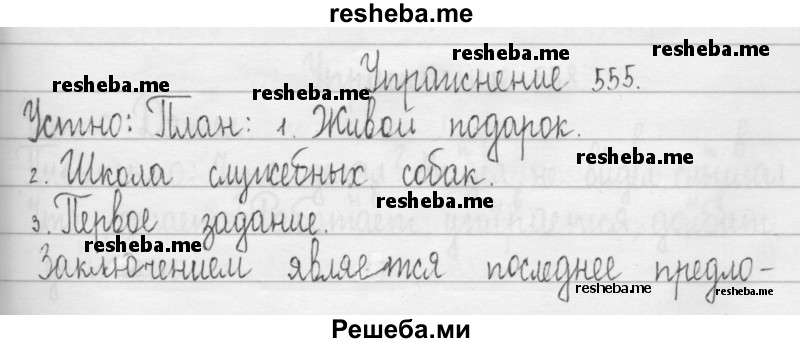 resheba.me
resheba.me
resheba.me
resheba.me
resheba.me
Упражнение 555.
Устно: План: 1. Живой подарок.
resheba.me
2. Школа служебных собак.
resheba.me
3. Первое задание.
resheba.me
Заключением является последнее предло-
resheba.me
resheba.me
Решеба.ми